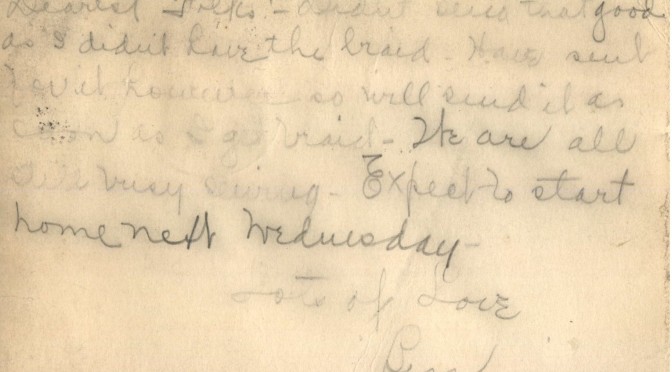 Dearest Folks:- Didn't send that good
as I didn't have the braid. Have sent
for it however so will send it as
soon as I get braid - We are all
still busy sewing - Expect to start
home next Wednesday -
Lots of Love